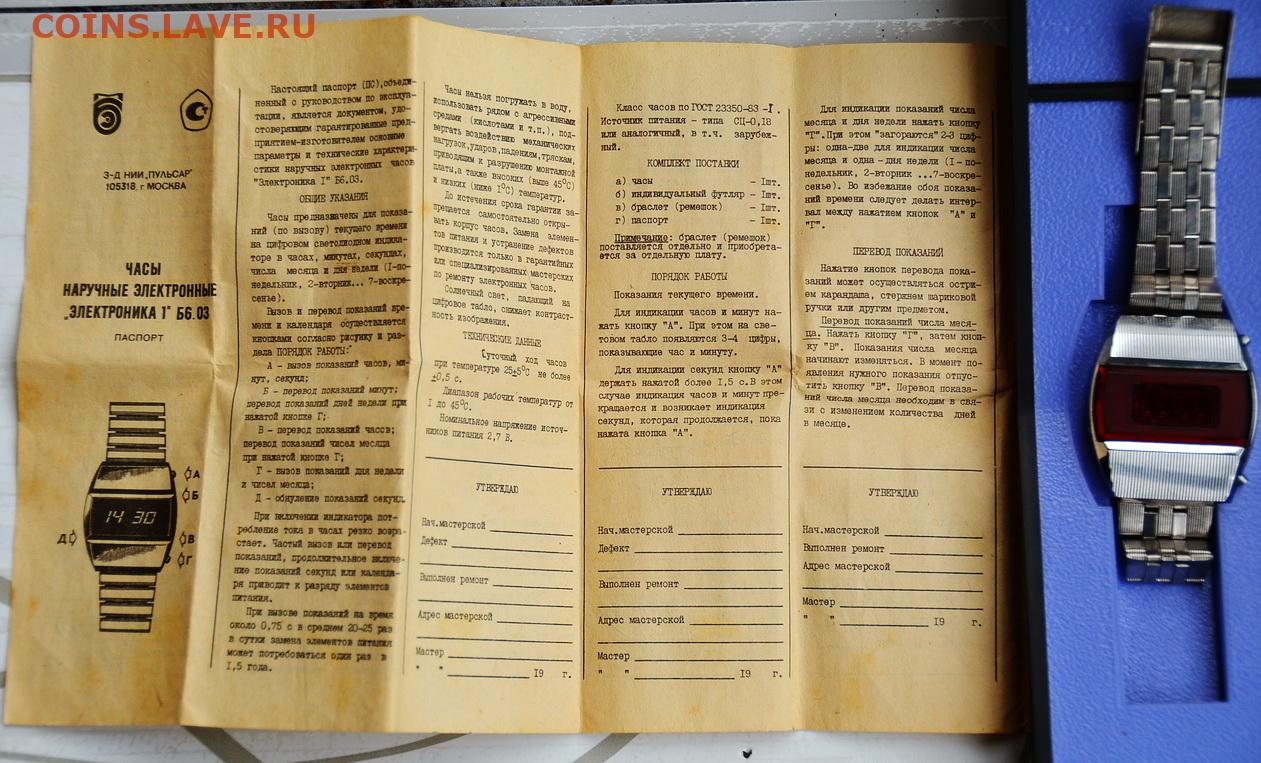 COINS.LAVE.RU
З-Д НИИ „ПУЛЬСАР"
105318, г МОСКВА
ЧАСЫ
НАРУЧНЫЕ ЭЛЕКТРОННЫЕ
„ЭЛЕКТРОНИКА 1" Б6.03
ПАСПОРТ
14 30
А
Б
Д
В
Г
Настоящий паспорт (ПС), объеди-
ненный с руководством по эксплуа-
тации, является документом, удо-
стоверяющим гарантированные пред-
приятием-изготовителем основные
параметры и технические характери-
стики наручных электронных часов
"Электроника I" Б6.03.
ОБЩИЕ УКАЗАНИЯ
Часы предназначены для показа-
ний (по вызову) текущего времени
на цифровом светодиодном индика-
торе в часах, минутах, секундах,
числа месяца и дня недели (I-по-
недельник, 2-вторник... 7-воскре-
сенье).
Вызов и перевод показаний вре-
мени и календаря осуществляется
кнопками согласно рисунку и раз-
дела ПОРЯДОК РАБОТЫ:
А - вызов показаний часов, ми-
нут, секунд;
Б - перевод показаний минут;
перевод показаний дней недели при
нажатой кнопке Г;
В - перевод показаний часов;
перевод показаний чисел месяца
при нажатой кнопке Г;
Г - вызов показаний дня недели
и чисел месяца;
Д - обнуление показаний секунд.
При включении индикатора пот-
ребление тока в часах резко возра-
стает. Частый вызов или перевод
показаний, продолжительное включе-
ние показаний секунд или календа-
ря приводит к разряду элементов
питания.
При вызове показаний на время
около 0,75 с в среднем 20-25 раз
в сутки замена элементов питания
может потребоваться один раз в
I,5 года.
Часы нельзя погружать в воду,
использовать рядом с агрессивными
средами (кислотами и т.п.), под-
вергать воздействию механических
нагрузок, ударов, падениям, тряскам,
приводящим к разрушению монтажной
платы, а также высоких (выше 45°С)
и низких (ниже I°С) температур.
До истечения срока гарантии за-
прещается самостоятельно откры-
вать корпус часов. Замена элемен-
тов питания и устранение дефектов
производится только в гарантийных
или специализированных мастерских
по ремонту электронных часов.
Солнечный свет, падающий на
цифровое табло, снижает контраст-
ность изображения.
ТЕХНИЧЕСКИЕ ДАННЫЕ
Суточный ход часов
при температуре 25±5°С не более
±0,5 с.
Диапазон рабочих температур от
I до 45°С.
Номинальное напряжение источ-
ников питания 2,7 В.
УТВЕРЖДАЮ
Нач.мастерской
Дефект
Выполнен ремонт
Адрес мастерской
Мастер
" " 19 г.
Класс часов по ГОСТ 23350-83 -I.
Источник питания - типа СЦ-0,18
или аналогичный, в т.ч. зарубеж-
ный.
КОМПЛЕКТ ПОСТАВКИ
а) часы - Iшт.
б) индивидуальный футляр - Iшт.
в) браслет (ремешок) - Iшт.
г) паспорт - Iшт.
Примечание: браслет (ремешок)
поставляется отдельно и приобрета-
ется за отдельную плату.
ПОРЯДОК РАБОТЫ
Показания текущего времени.
Для индикации часов и минут на-
жать кнопку "А". При этом на све-
товом табло появляются 3-4 цифры,
показывающие час и минуту.
Для индикации секунд кнопку "А"
держать нажатой более I,5 с. В этом
случае индикация часов и минут пре-
кращается и возникает индикация
секунд, которая продолжается, пока
нажата кнопка "А".
УТВЕРЖДАЮ
Нач.мастерской
Дефект
Выполнен ремонт
Адрес мастерской
Мастер
" " 19 г.
Для индикации показаний числа
месяца и дня недели нажать кнопку
"Г". При этом "загораются" 2-3 циф-
ры: одна-две для индикации числа
месяца и одна - дня недели (I - по-
недельник, 2-вторник ...7-воскре-
сенье). Во избежание сбоя показа-
ний времени следует делать интер-
вал между нажатием кнопок "А" и
"Г".
ПЕРЕВОД ПОКАЗАНИЙ
Нажатие кнопок перевода пока-
заний может осуществляться остри-
ем карандаша, стержнем шариковой
ручки или другим предметом.
Перевод показаний числа меся-
ца. Нажать кнопку "Г", затем кноп-
ку "В". Показания числа месяца
начинают изменяться. В момент по-
явления нужного показания отпус-
тить кнопку "В". Перевод показа-
ний числа месяца необходим в свя-
зи с изменением количества дней
в месяце.
УТВЕРЖДАЮ
Нач.мастерской
Выполнен ремонт
Адрес мастерской
Мастер
" " 19 г.